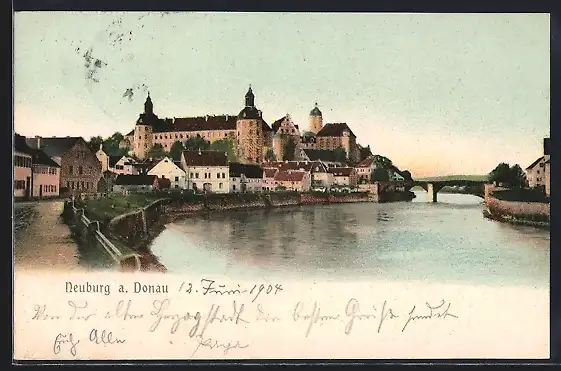 Neuburg a. Donau 12. Juni 1904
Von der alten Herzogstadt den besten Gruß sendet
Euch Allen
Papa